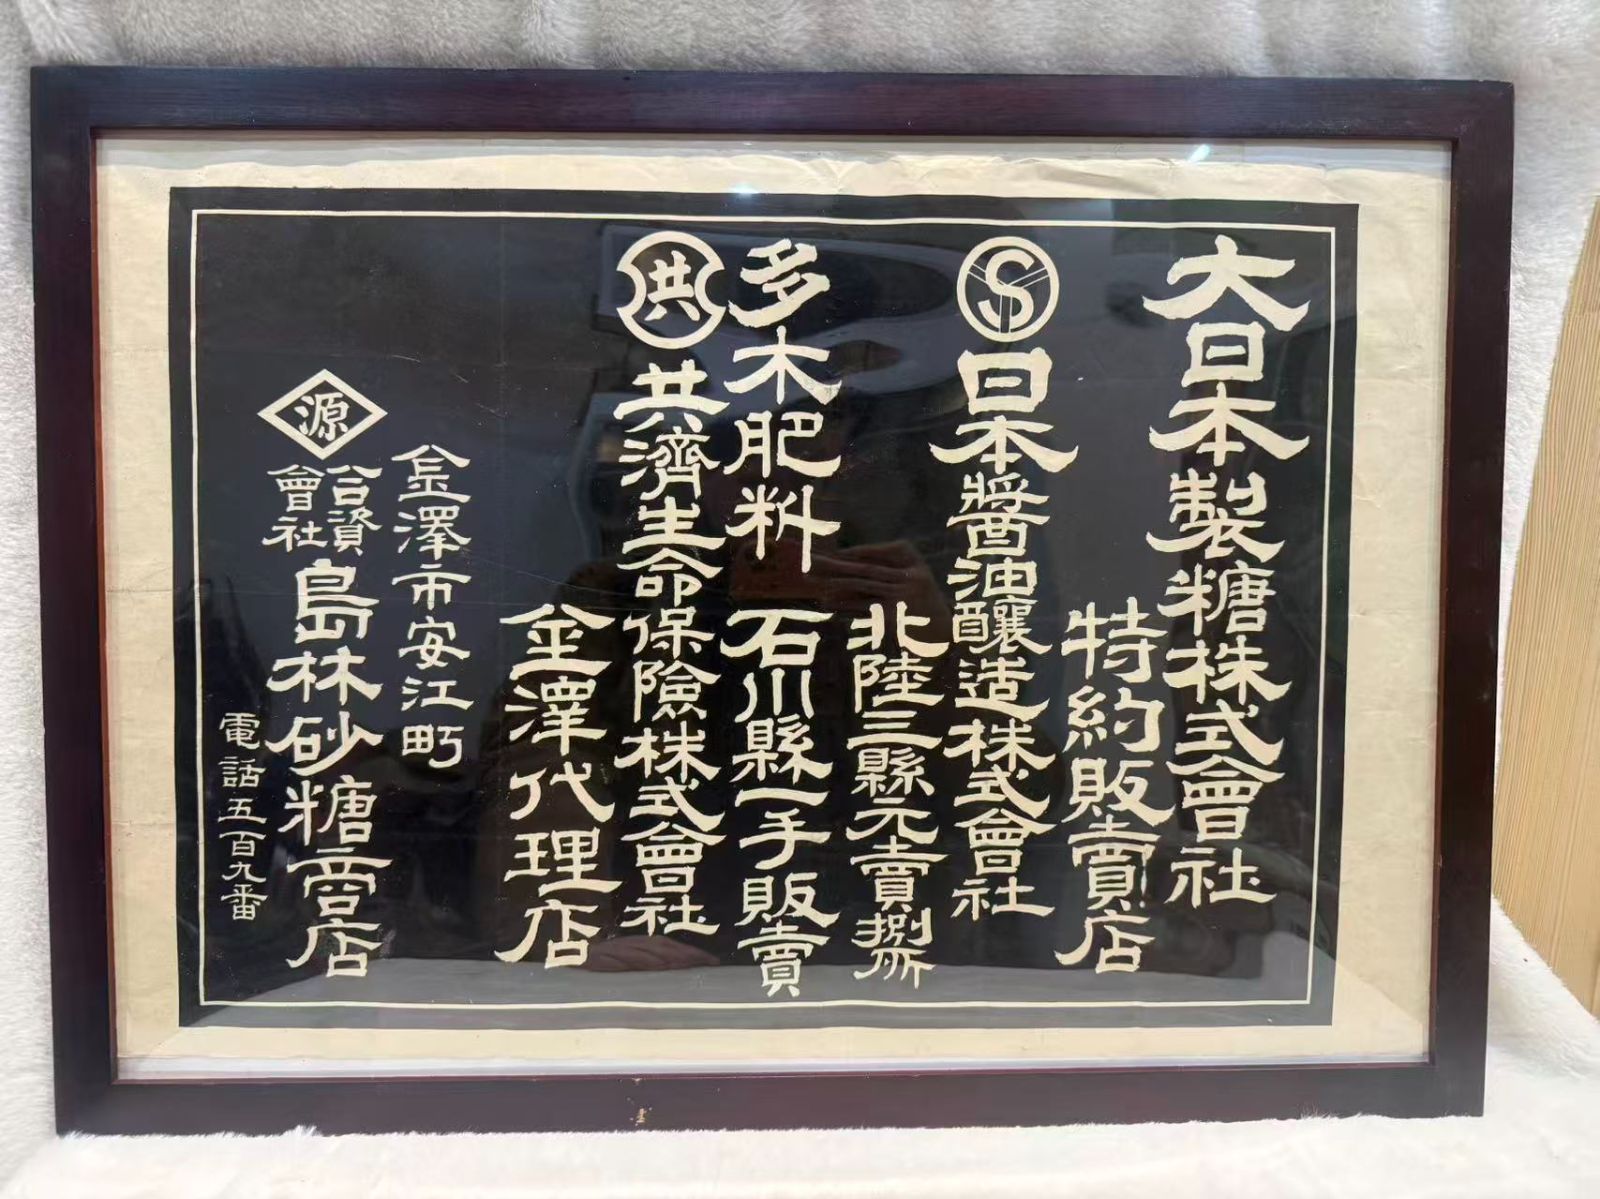 大日本製糖株式會社
特約販賣店
S
日本醬油釀造株式會社
北陸三縣元賣捌所
多木肥料 石川縣一手販賣
共
共濟生命保險株式會社
金澤代理店
金澤市安江町
源
合資會社島林砂糖商店
電話五百九番